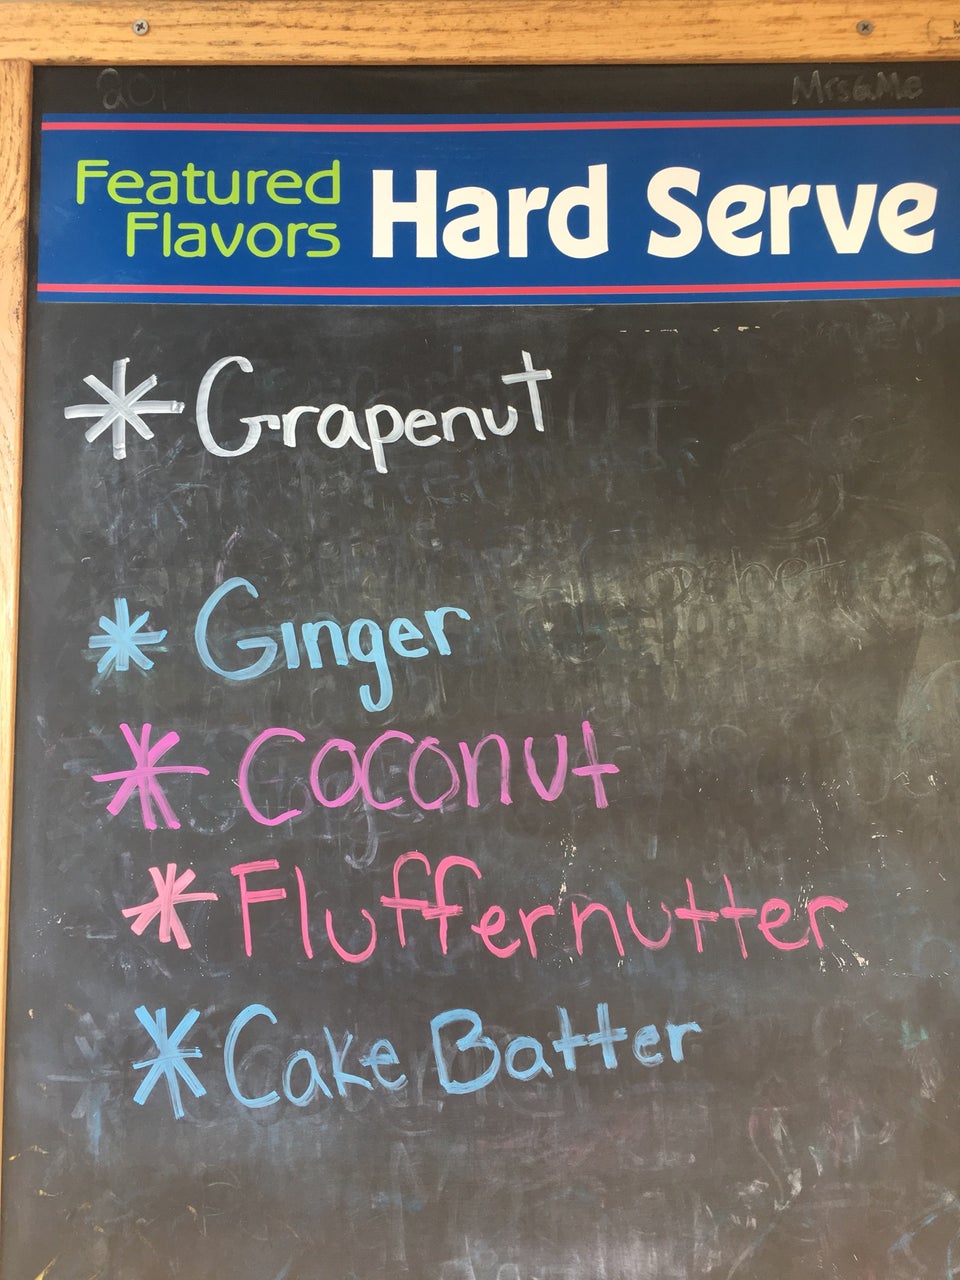 Mrs&Me
Featured
Flavors
Hard Serve
* Grapenut
* Ginger
* Coconut
* Fluffernutter
* Cake Batter